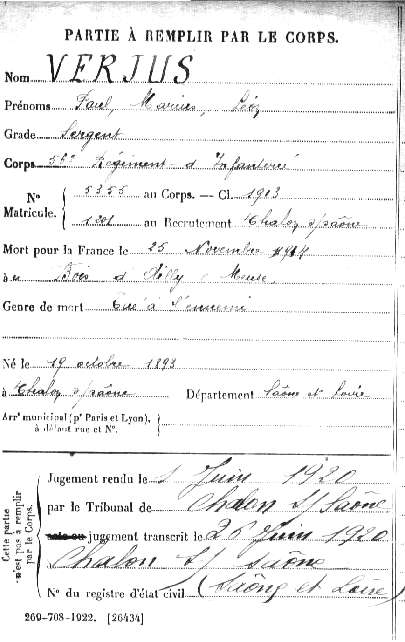 PARTIE À REMPLIR PAR LE CORPS.
Nom VERJUS
Prénoms Paul, Marius,
Grade Sergent
Corps 56e Régiment d'Infanterie
No Matricule. 5355 au Corps. — Cl. 1913
1201 au Recrutement Chalon s/saône
Mort pour la France le 25 Novembre 1914
à Bois d'Ailly, Meuse
Genre de mort Tué à l'ennemi
Né le 19 octobre 1893
à Chalon s/saône Département Saône et Loire
Arrt municipal (pr Paris et Lyon),
à défaut rue et No.
Cette partie n'est pas à remplir par le Corps.
Jugement rendu le 1 Juin 1920
par le Tribunal de Chalon S/Saône
jugement transcrit le 26 Juin 1920
Chalon S/ Saône
No du registre d'état civil (Saône et Loire)
269-708-1922. [26434]